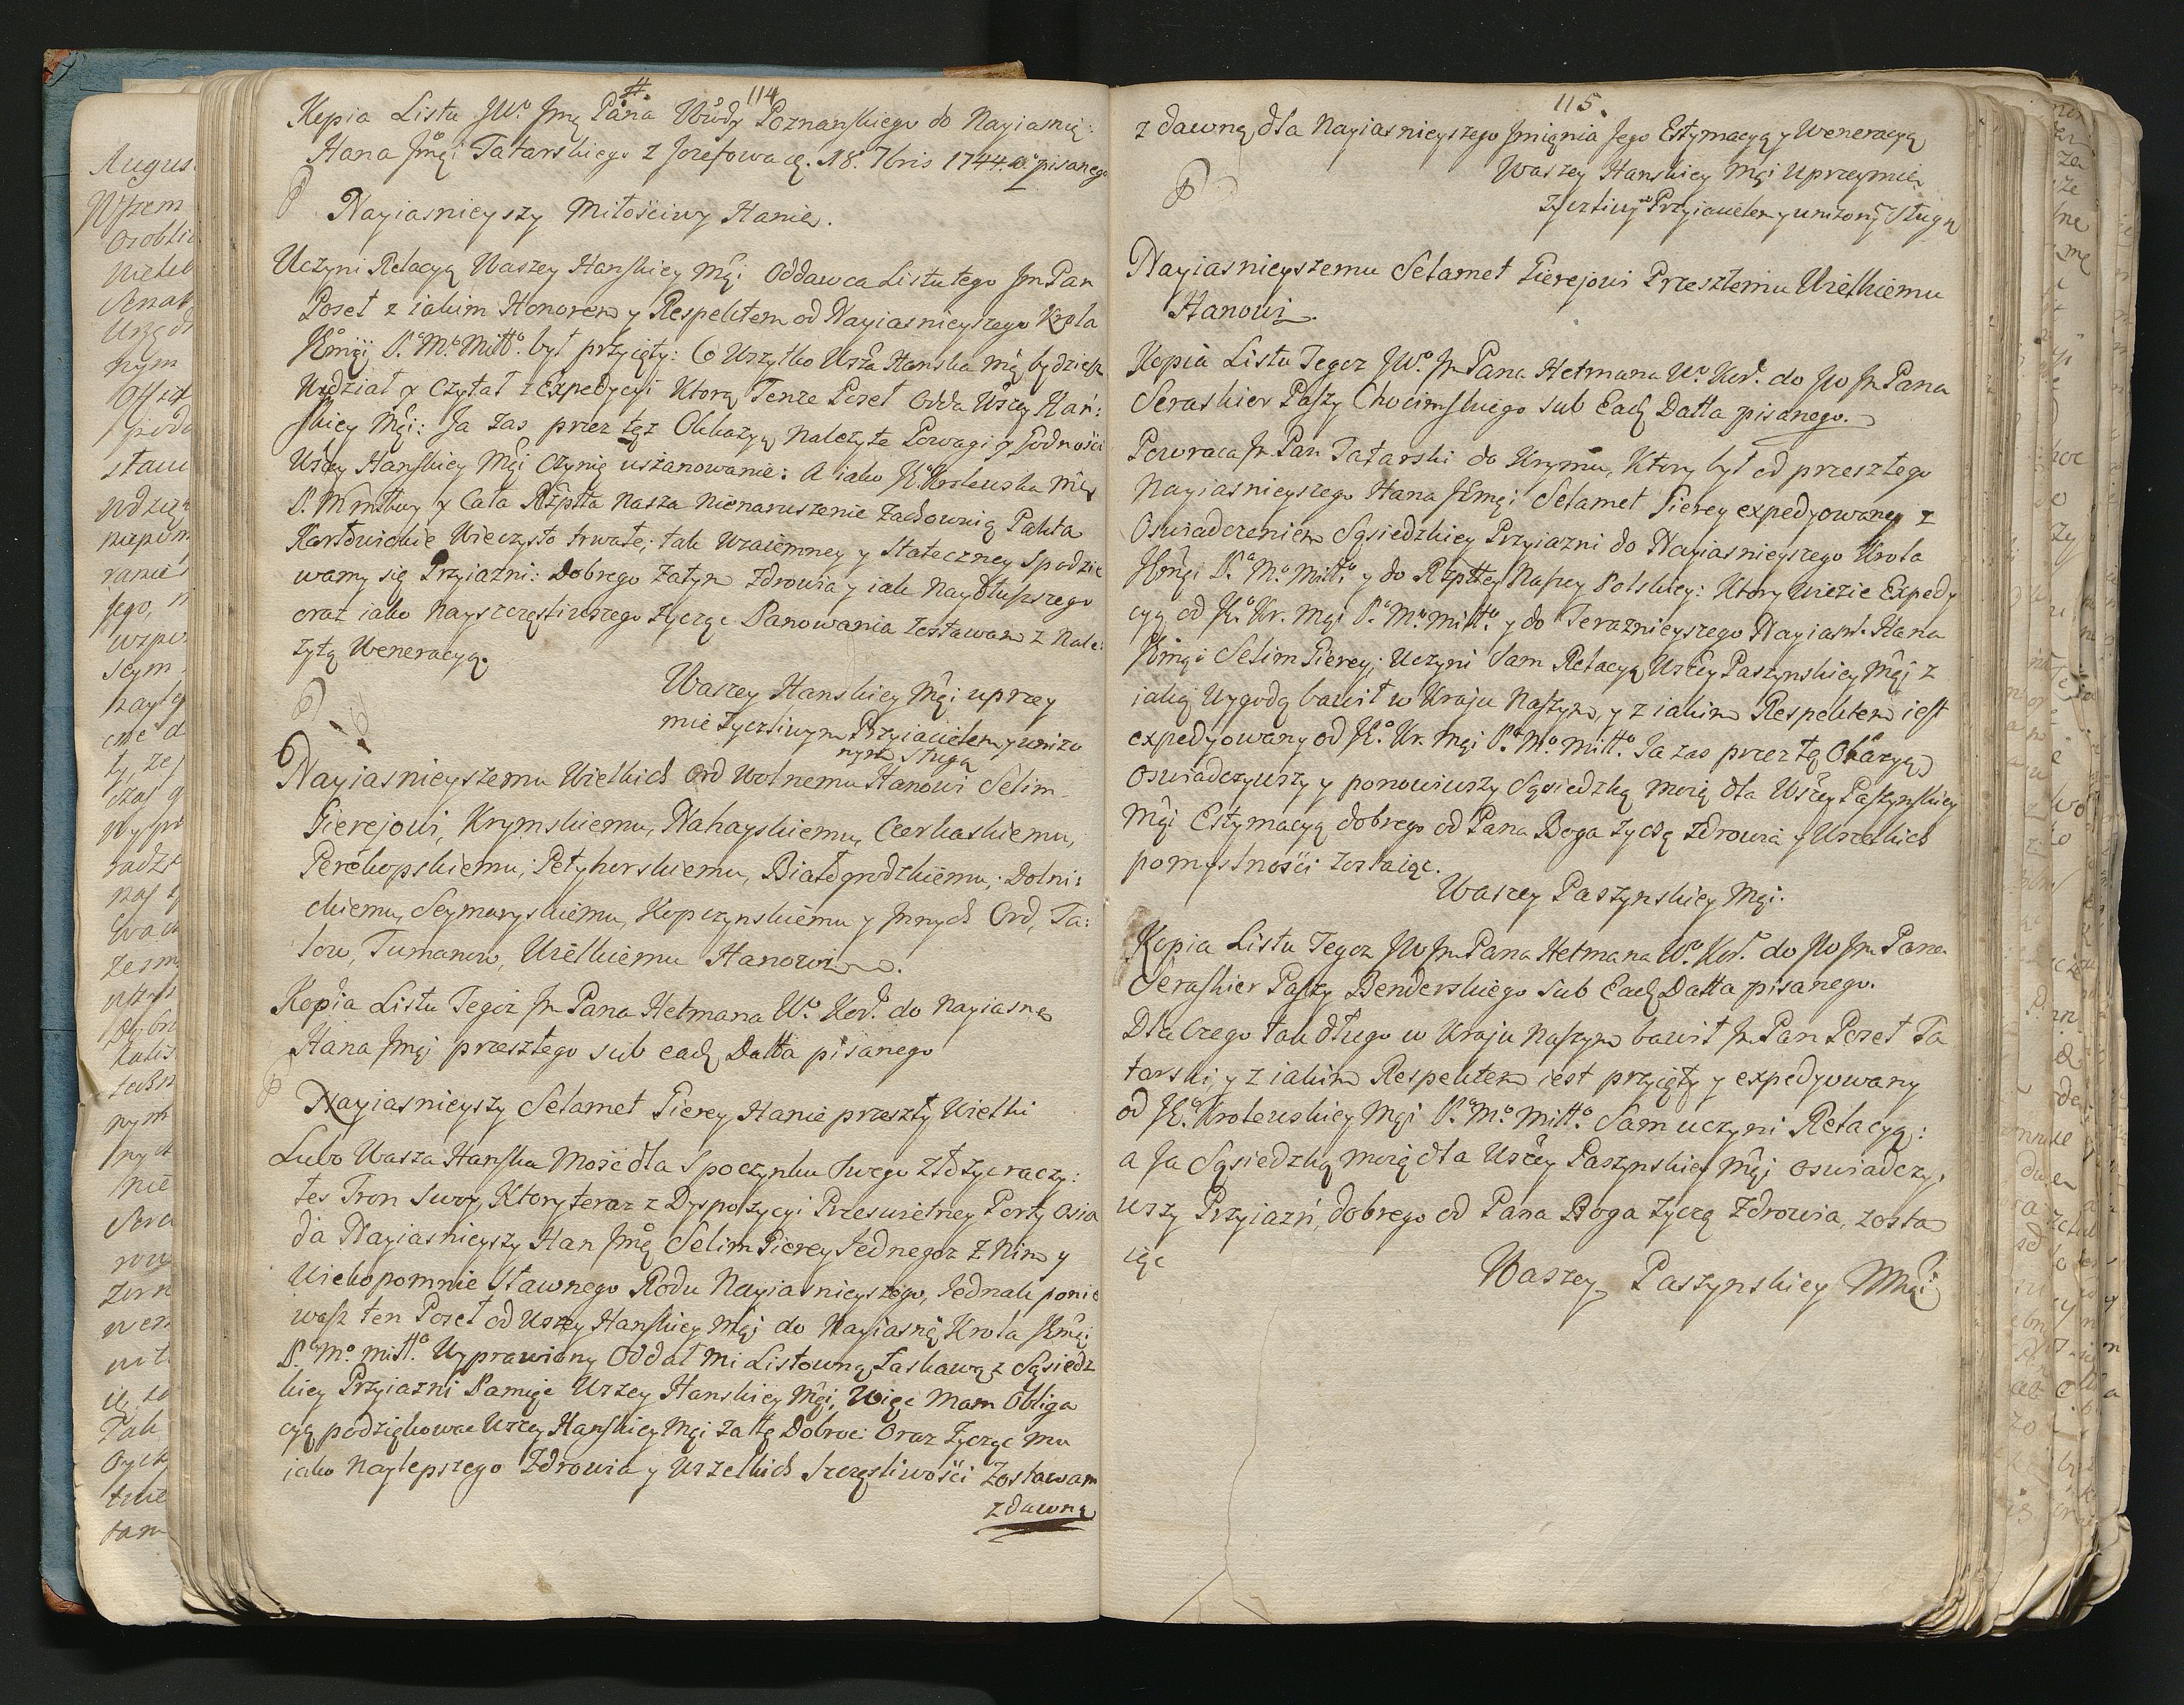 #. 114
Kopia Listu JWo. Jmę Pana Wdy Poznanskiego do Nayiasnie:
Hana Jmęi Tatarskiego z Jozefowa d. 18. 7bris 1744. pisanego
Nayiasnieyszy Miłościwy Hanie.
Uczyni Relacyą Waszey Hanskiey Męi Oddawca Listu tego Jm Pan
Poseł z iakim Honorem y Respektem od Nayiasnieyszego Krola
Jmęi P. Mo. Miłło. był przyięty: Co Wszytko Wsza Hanska Mę będziesz
Widział y Czytał z Expedycyi Ktorą Tenze Poseł Odda Wszey Han:
skiey Męi: Ja zas przez tęz Okkazyą należyte Powagi y Godności
Wszey Hanskiey Męi Czynię uszanowanie: A iako J.K. Krolewska Mć
P. M miłłwy y Cała Rzptta nasza nienaruszenie Zachownią Pakta
Karłowickie Wieczysto trwałe; tak Wzaiemney y Stateczney Spodzie
wamy się Przyiazni: Dobrego zatym Zdrowia y iak Naydłuższego
oraz iako nayszczęstiwszego Życząc Panowania Zostawam z Nale:
żytą Weneracyą.
Waszey Hanskiey Męi uprzey
mie Życzliwym Przyiacielem y unizo
nym Sługą
Nayiasnieyszemu Wielkich Ord Wolnemu Hanowi Selim
Gierejowi, Krymskiemu, Nahayskiemu, Czerkaskiemu,
Perekopskiemu, Petyhorskiemu, Białogrodzkiemu, Dolni:
ckiemu, Seymanyskiemu, Kopczynskiemu y Innych Ord, Ta:
low, Tumanow, Wielkiemu Hanowi.
Kopia Listu Tegoz Jm Pana Hetmana Wo. Kor. do Nayiasne
Hana Jmęi przeszłego sub eadę Datta pisanego
Nayiasnieyszy Selamet Gierey Hanie przeszły Wielki
Lubo Wasza Hanska Mość dla Spoczynku Swego złożyć raczy:
łes Tron Swoy, Ktory teraz z Dyspozycyi Przeswietney Porty Osia
da Nayiasnieyszy Han Jmę Selim Gierey Jednegoz z Nim y
Wiekopomnie Sławnego Rodu Nayiasnieyszego, Jednak ponie
wasz ten Poseł od Wszey Hanskiey Męi do Nayiasnię Krola Jmęi
P. Mo. miłło. Wyprawiony Oddał mi Listowną Łaskawą z Sąsiedz
kiey Przyiazni Pamięć Wszey Hanskiey Męi, Więc Mam Obliga
cyą podziękować Wszey Hanskiey Męi za tę Dobroć: Oraz Życząc mu
iako Naylepszego Zdrowia y Wszelkich Szczęsliwości Zostawam
z dawną
115.
z dawną dla Nayiasnieyszego Jmienia Jego Estymacyą y Weneracyą
Waszey Hanskiey Męi Uprzeymie
Życzliwy Przyiacielem y unizony Sługą
Nayiasnieyszemu Selamet Gierejowi Przeszłemu Wielkiemu
Hanowi.
Kopia Listu Tegoz JWo. Jm Pana Hetmana Wo. Kor. do JW Jm Pana
Seraskier Paszy Chocimskiego sub Eadę Datta pisanego.
Powraca Jm Pan Tatarski do Krymu, Ktory był od przeszłego
Nayiasnieyszego Hana Jmęi Selamet Gierey expedyowany z
Oswiadczeniem Sąsiedzkiey Przyiazni do Nayiasnieyszego Krola
Jmęi P. Mo. Miłło. y do Rzpttey Naszey Polskiey: Ktory Wiezie Expedy
cyą od JK. Kr. Męi P. Mo. miłło. y do Teraznieyszego Nayiasn. Hana
Jmęi Selim Gierey: Uczyni Sam Relacyą Wszey Paszynskiey Męi z
iaką Wygodą bawił w Kraju Naszym, y z iakim Respektem iest
expedyowany od JK. Kr. Męi P. Mo. Miłło. Ja zas przez tę Okazyą
Oswiadczywszy y ponowiwszy Sąsiedzką moię dla Wszey Paszynskiey
Męi Estymacyą dobrego od Pana Boga Życzę Zdrowia y Wszelkich
pomyslności zostaiąc.
Waszey Paszynskiey Męi.
Kopia Listu Tegoz JW Jm Pana Hetmana Wo. Kor. do JW Jm Pana
Seraskier Paszy Benderskiego sub Eadę Datta pisanego.
Dla Czego tak długo w Kraju Naszym bawił Jm Pan Poseł Ta
tarski, y z iakim Respektem iest przyięty y expedyowany
od JK. Krolewskiey Męi P. Mo. Miłło. Sam uczyni Relacyą:
a Ja Sąsiedzką moię dla Wszey Paszynskiey Męi oswiadczy.
wszy Przyiazń, dobrego od Pana Boga Życzę Zdrowia, zosta
iąc
Waszey Paszynskiey Mmęi